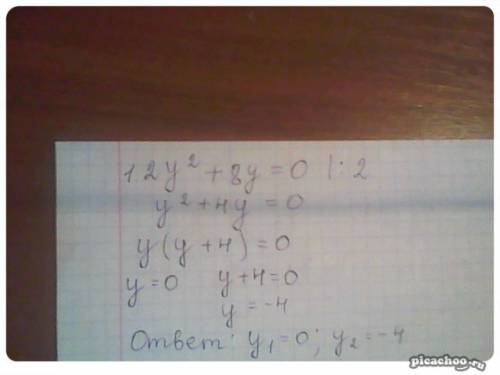 1. 2y² + 8y = 0 |: 2
y² + 4y = 0
y(y + 4) = 0
y = 0 y + 4 = 0
y = -4
Ответ: y₁ = 0; y₂ = -4
picachoo.ru